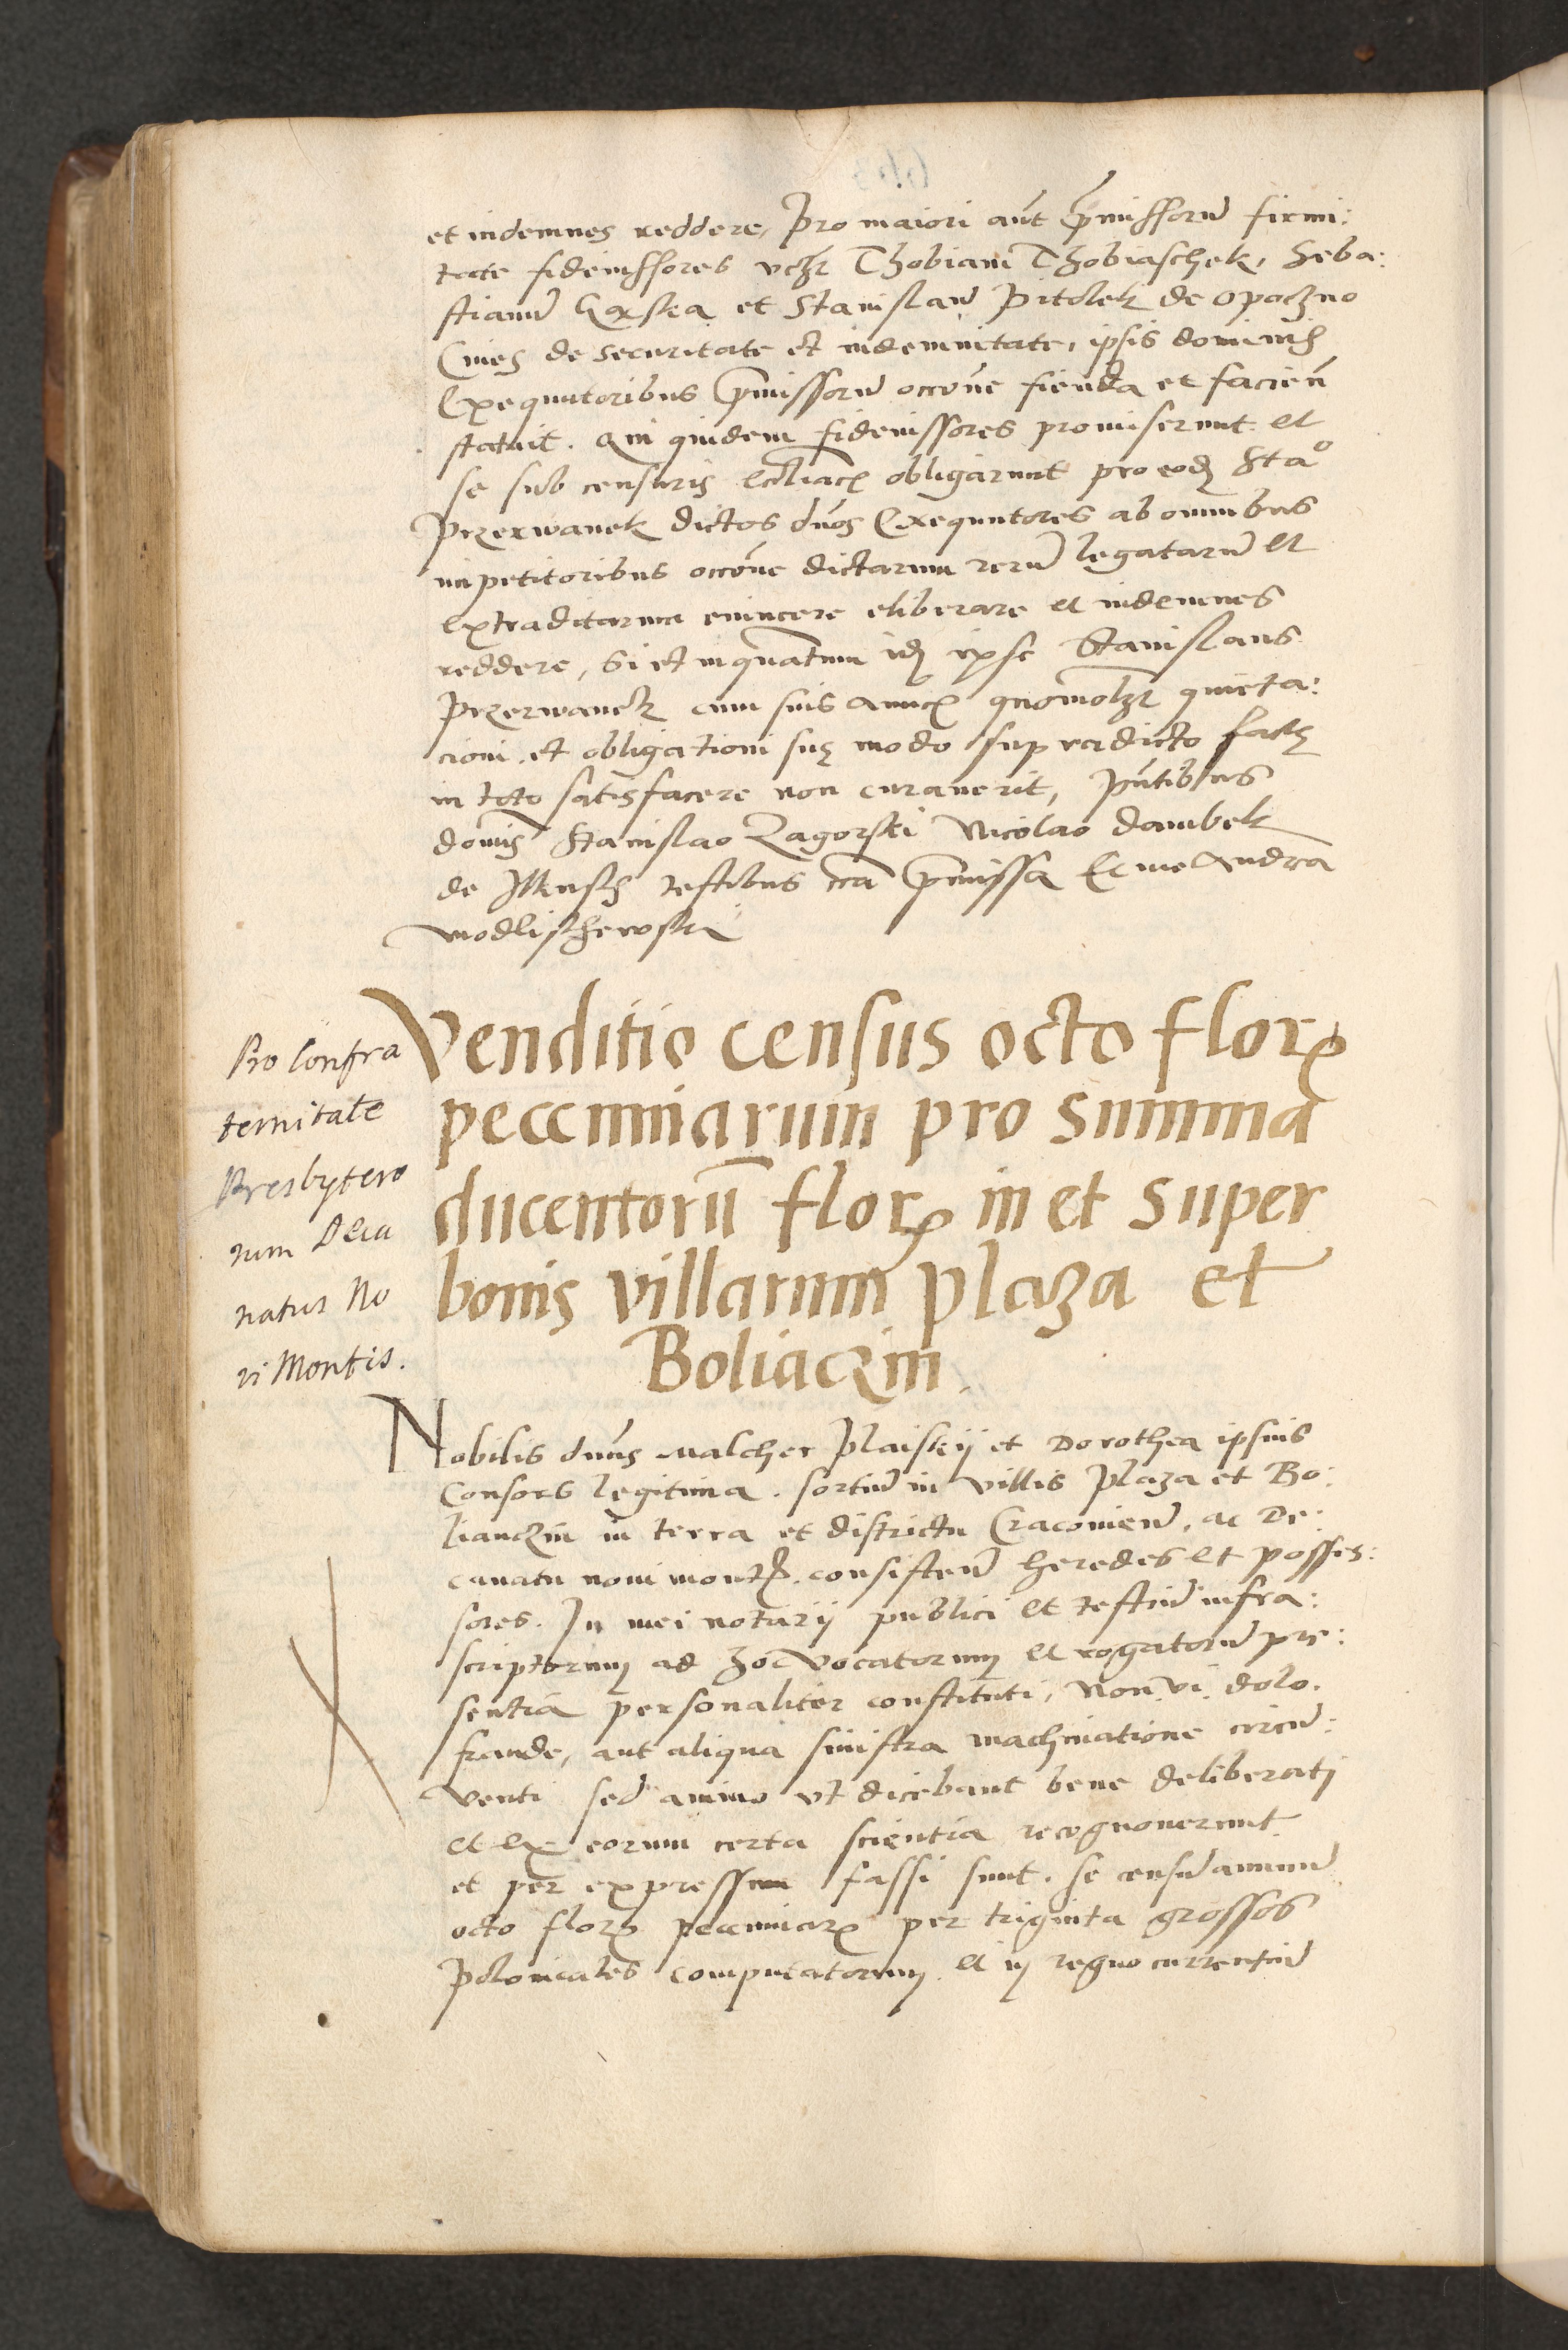 et indemnes reddere, Pro maiori aūt p̄missorū firmi:
tate fideiussores vczł Thobiam Thobiaschek, Seba:
stianū et Stanislaū Pitolek de Opoczno
Cives de securitate et indemnitate, ipsis dominis
Exequutoribus p̄missorū occōne fienda et facień
statuit. Qui quidem fideiussores promiserunt et
se sub censuris obligarunt pro eod Staº
Przerwanek dictos dnos Exequutores ab omnibus
impetitoribus occōne dictarum rerū legatarū et
extraditarum evincere eliberare et indemnes
reddere, si et inquantum idē ipse Stanislaus
Przerwanek cum suis quomolzt quieta:
cioni et obligationi suę modo supradicto factę
in toto satisfacere non curaverit, pūtibus
domīs Stanislao Zagorski Nicolao Dambek
de Ilkusch testibus cīca p̄missa Et me Andrea
Modlischewski
Pro Confra
ternitate
Presbytero
rum Deca
natus No
vi Montis.
Venditio census octo florꝝ
peccuniarum pro summa
ducentorū florꝝ in et super
bonis villarum Plaza et
Boliaczin.
Nobilis dnūs Malcher Plaiskij et Dorothea ipsius
Consors legitima. sortiū in villis Plaza et Bo:
lianczin in terra et districtu Cracovień. ac De:
canatu novi montis. consisteń heredes et posses:
sores. In mei notarij publici et testiū infra:
scriptorum ad hoc vocatorum et rogatorū pre:
sentia personaliter constituti, Non vi. dolo.
fraude, aut aliqua sinistra machinatione circū:
venti sed animo vt dicebant bene deliberati
et ex eorum certa scientia recognoverunt
et per expressum fassi sunt. se censū annuū
octo florꝝ peccuniarꝝ per triginta grossos
Polonicales computatorum et in regno currentiū